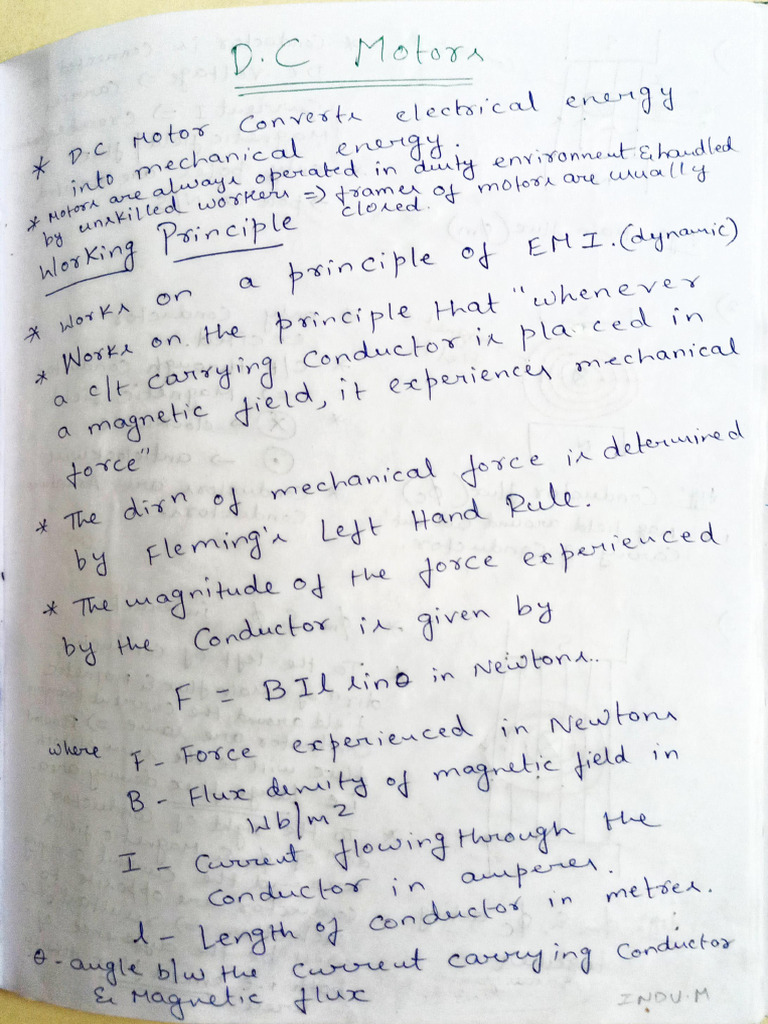 D.C Motors
* D.C Motor Converts electrical energy
into mechanical energy.
* Motors are always operated in dusty environment & handled
by unskilled workers => frames of motors are usually
closed.
Working Principle
* Works on a principle of EMI. (dynamic)
* Works on the principle that "whenever
a c/t carrying conductor is placed in
a magnetic field, it experiences mechanical
force"
* The dirn of mechanical force is determined
by Fleming's Left Hand Rule.
* The magnitude of the force experienced
by the Conductor is given by
F = B I l sinθ in Newtons..
where F - Force experienced in Newtons
B - Flux density of magnetic field in
Wb/m²
I - Current flowing through the
Conductor in amperes.
l - Length of conductor in metres.
θ - angle b/w the current carrying Conductor
& Magnetic flux
INDU.M